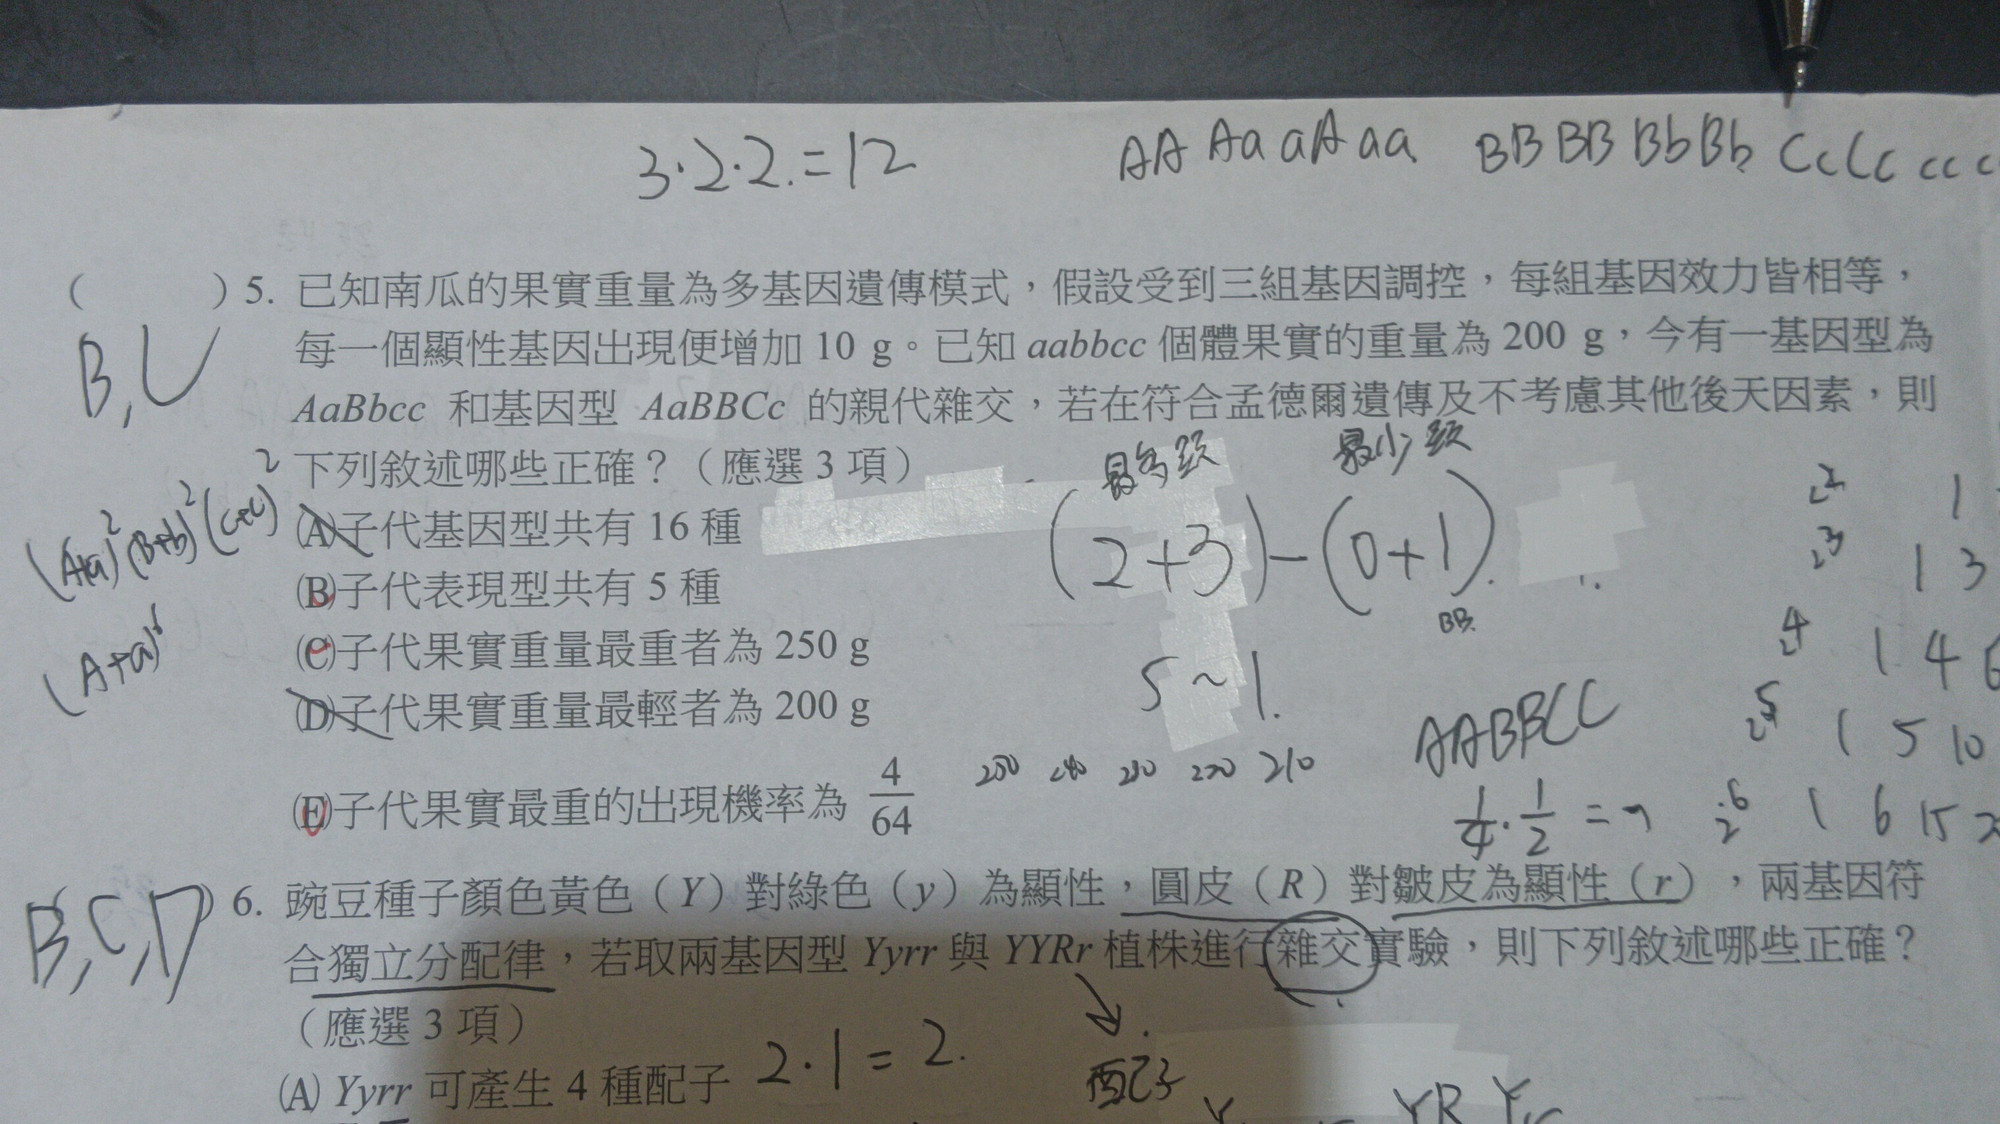 3·2·2.=12
AA Aa aA aa BB BB Bb Bb Cc Cc cc
( ) 5. 已知南瓜的果實重量為多基因遺傳模式，假設受到三組基因調控，每組基因效力皆相等，
每一個顯性基因出現便增加 10 g。已知 aabbcc 個體果實的重量為 200 g，今有一基因型為
B,C
AaBbcc 和基因型 AaBBCc 的親代雜交，若在符合孟德爾遺傳及不考慮其他後天因素，則
下列敘述哪些正確？（應選 3 項）
最多顯 最少顯
(2+3)-(0+1)
BB
(A+a)² (B+b)² (C+c)²
(A+a)⁶
(A)子代基因型共有 16 種
(B)子代表現型共有 5 種
(C)子代果實重量最重者為 250 g
5~1.
(D)子代果實重量最輕者為 200 g
250 240 230 220 210
(E)子代果實最重的出現機率為 4/64
AABBCC
1/4·1/2=
2² 1
2³ 1 3
2⁴ 1 4 6
2⁵ 1 5 10
2⁶ 1 6 15 2
B,C,D
) 6. 豌豆種子顏色黃色（Y）對綠色（y）為顯性，圓皮（R）對皺皮為顯性（r），兩基因符
合獨立分配律，若取兩基因型 Yyrr 與 YYRr 植株進行雜交實驗，則下列敘述哪些正確？
（應選 3 項）
(A) Yyrr 可產生 4 種配子 2·1=2.
配子
YR